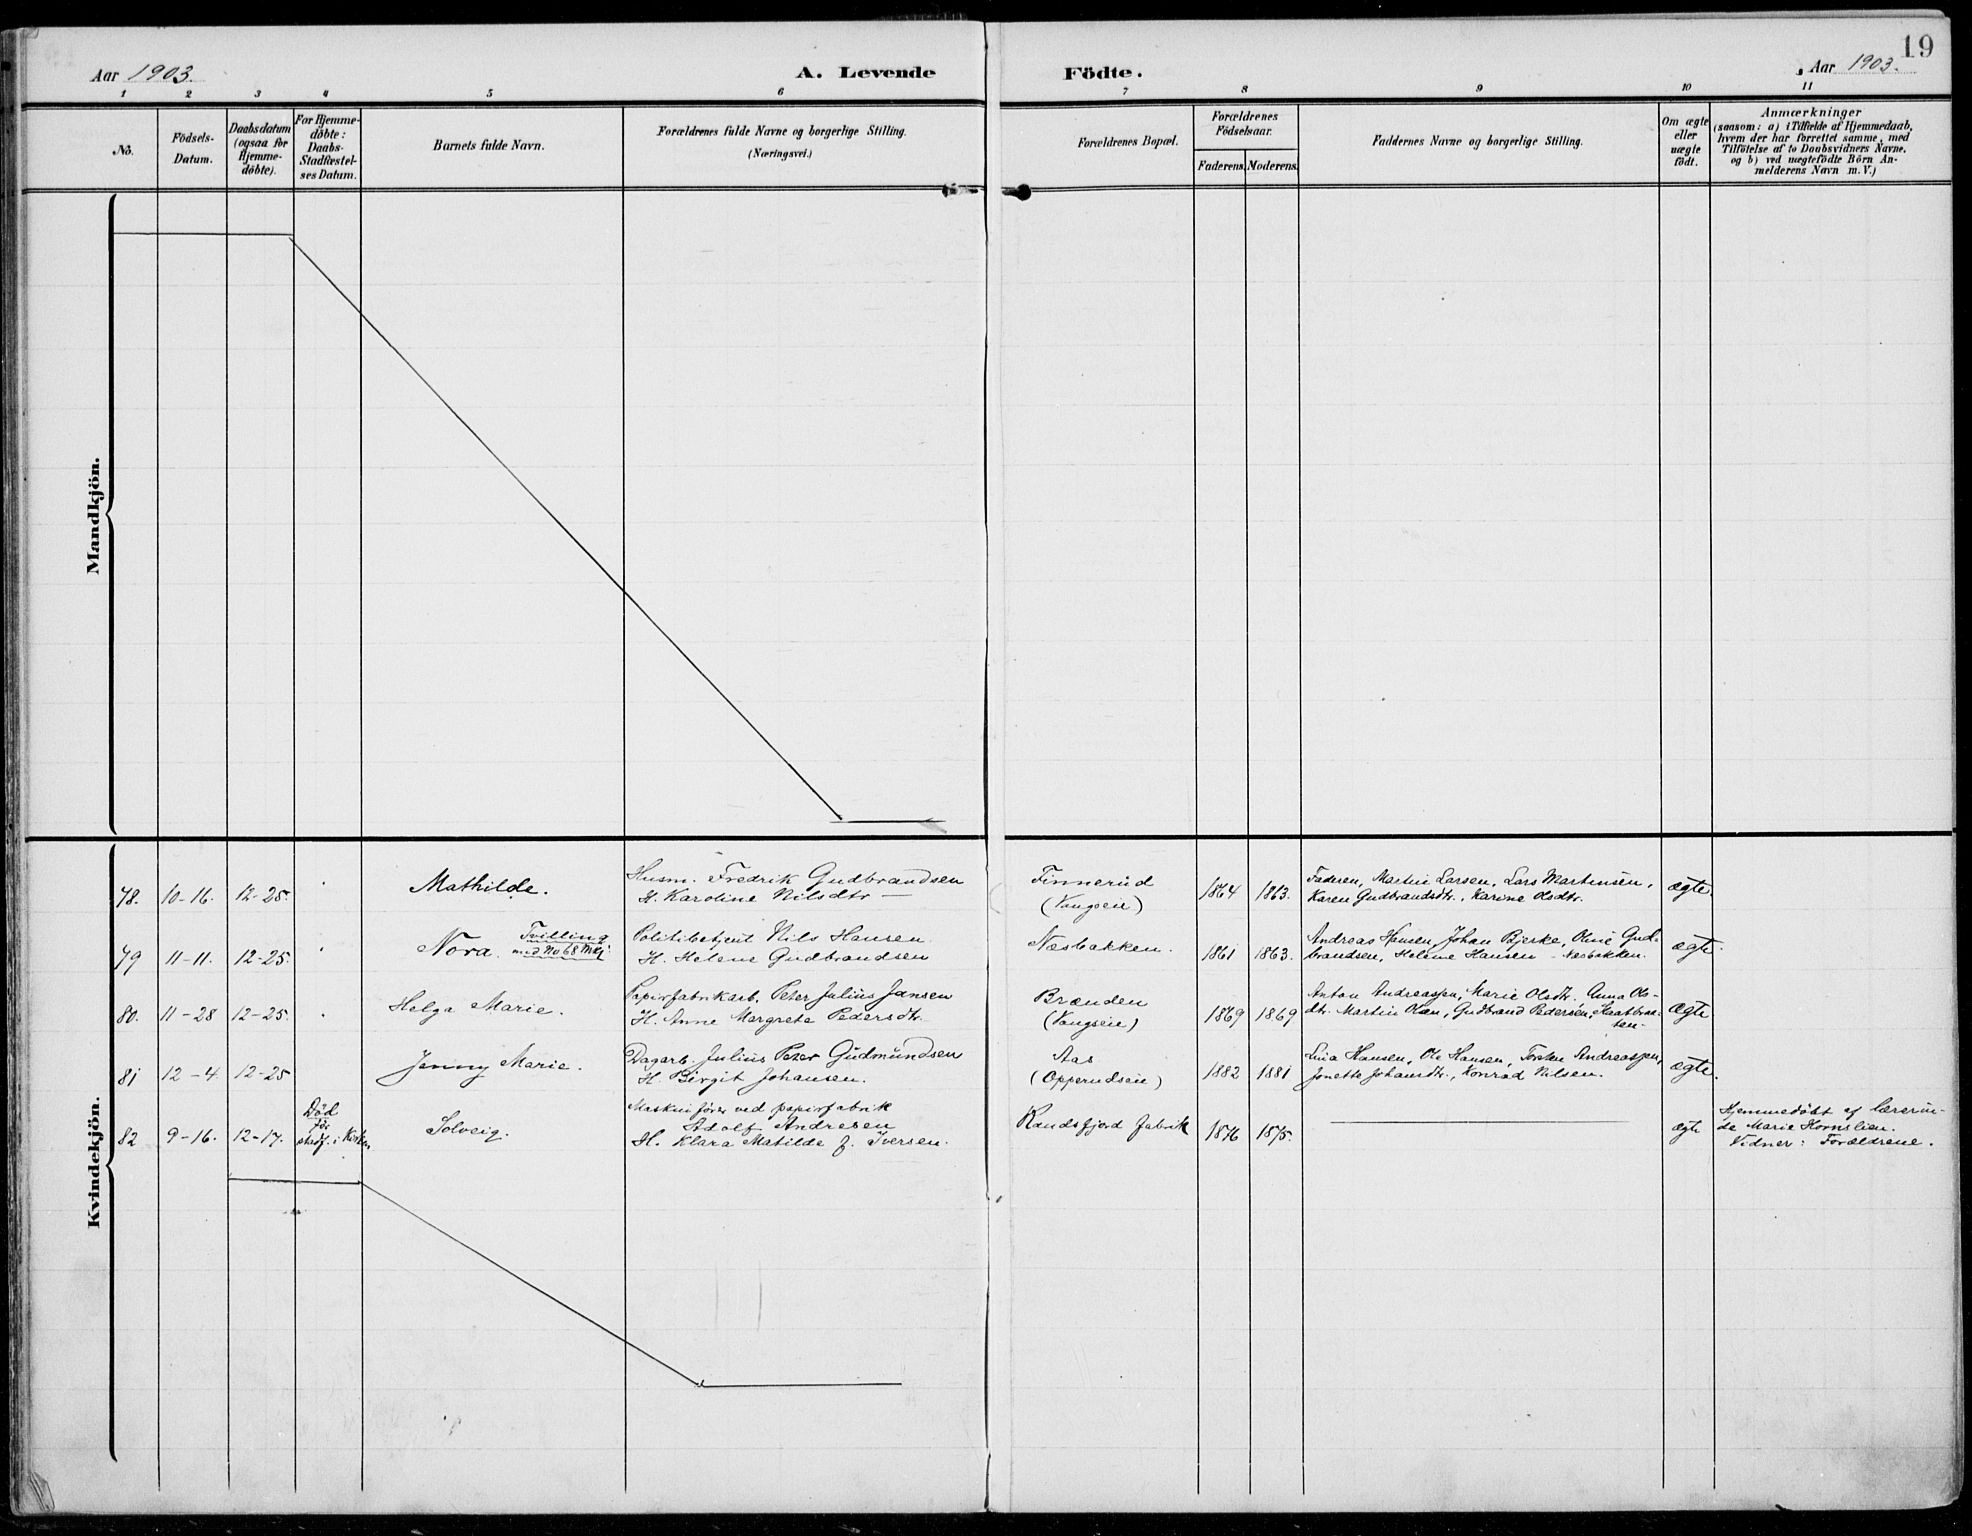 19
Aar 1903.
A. Levende
Födte.
Aar 1903.
1 2 3 4 5 6 7 8 9 10 11
No.
Födsels-
Datum.
Daabsdatum
(ogsaa for
Hjemme-
døbte).
For Hjemme-
døbte:
Daabs-
Stadfæstel-
ses Datum.
Barnets fulde Navn.
Forældrenes fulde Navne og borgerlige Stilling.
(Næringsvei.)
Forældrenes Bopæl.
Forældrenes
Födselsaar.
Faderens. Moderens.
Faddernes Navne og borgerlige Stilling.
Om ægte
eller
uægte
födt.
Anmærkninger
(saasom: a) i Tilfælde af Hjemmedaab,
hvem der har forrettet samme, med
Tilföielse af to Daabsvidners Navne,
og b) ved uægtefödte Börn An-
melderens Navn m. V.)
Mandkjön.
Kvindekjön.
78. 10-16. 12-25. Mathilde.
Husm. Fredrik Gudbrandsen
H. Karoline Nilsdtr
Finnerud
(Vangseie)
1864 1863.
Faderen, Martin Larsen, Lars Martinsen,
Karen Gudbrandsdtr., Karine Olsdtr.
ægte.
79 11-11. 12-25. Nora.
Tvilling
med No 68 Mkj.
Politibetjent Nils Hansen
H. Helene Gudbrandsen
Næsbakken.
1861 1863.
Andreas Hansen, Johan Bjerke, Oline Gud-
brandsen, Helene Hansen - Nesbakken.
ægte.
80. 11-28 12-25. Helga Marie.
Papirfabrikarb. Peter Julius Jansen
H. Anne Margrete Pedersdtr.
Brænden
(Vangseie)
1869 1869
Anton Andreassen, Marie Olsdtr. Anna Ols-
dtr. Martin Olsen, Gudbrand Pedersen,
ægte
81 12-4. 12-25 Jenny Marie.
Dagarb. Julius Peter Gudmundsen
H. Birgit Johansen.
Aas
(Opperudseie)
1882 1881
Lina Hansen, Ole Hansen, Torsten Andreassen,
Jonette Johansdtr., Konrad Nilsen.
ægte.
82 9-16. 12-17.
Död
før
stadf. i Kirken
Solveig.
Maskinfører ved papirfabrik
Adolf Andresen
H. Klara Matilde f. Iversen.
Randsfjord fabrik
1876 1875.
ægte
Hjemmedöbt af lærerin-
de Marie Hornslien.
Vidner: Forældrene.